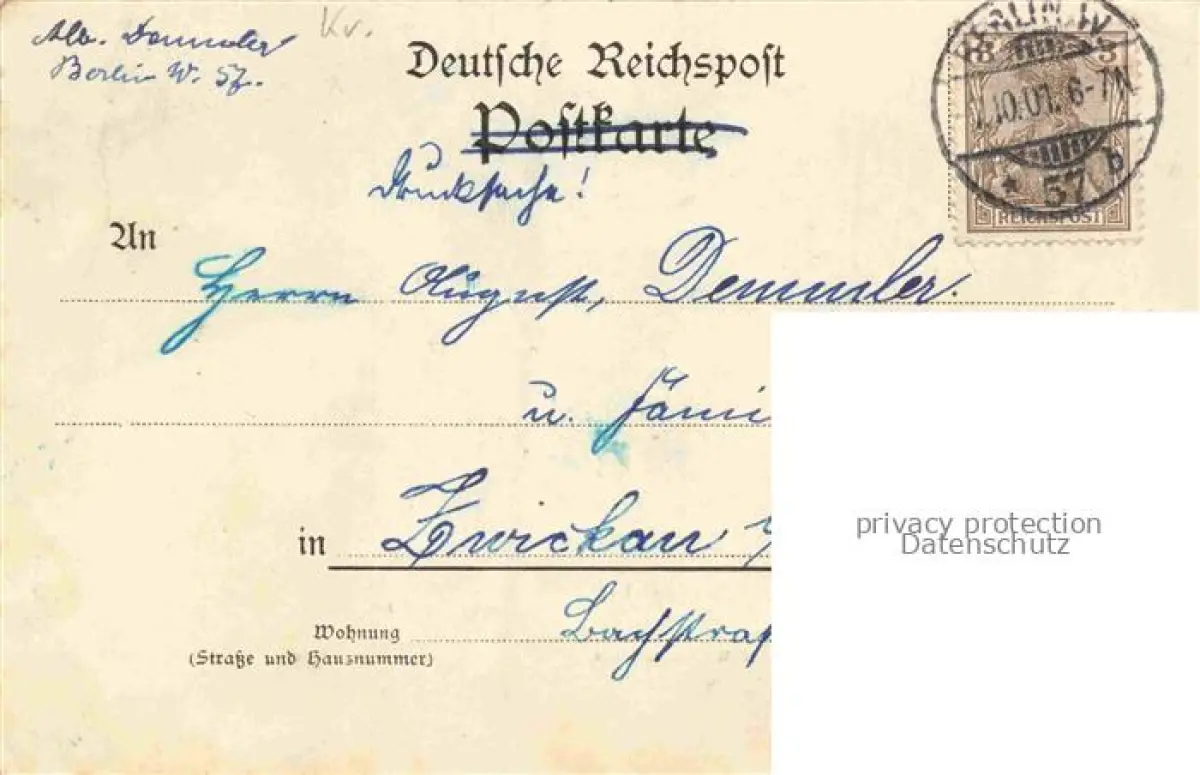 Alb. Demmler
Berlin W. 57.
Kv.
Deutsche Reichspost
Postkarte
Drucksache!
BERLIN W
10.01. 6-7N.
* 57 b
3 3
REICHSPOST
An
Herrn August Demmler.
u. Fami
in Zwickau
Wohnung Bachstraß
(Straße und Hausnummer)
privacy protection
Datenschutz